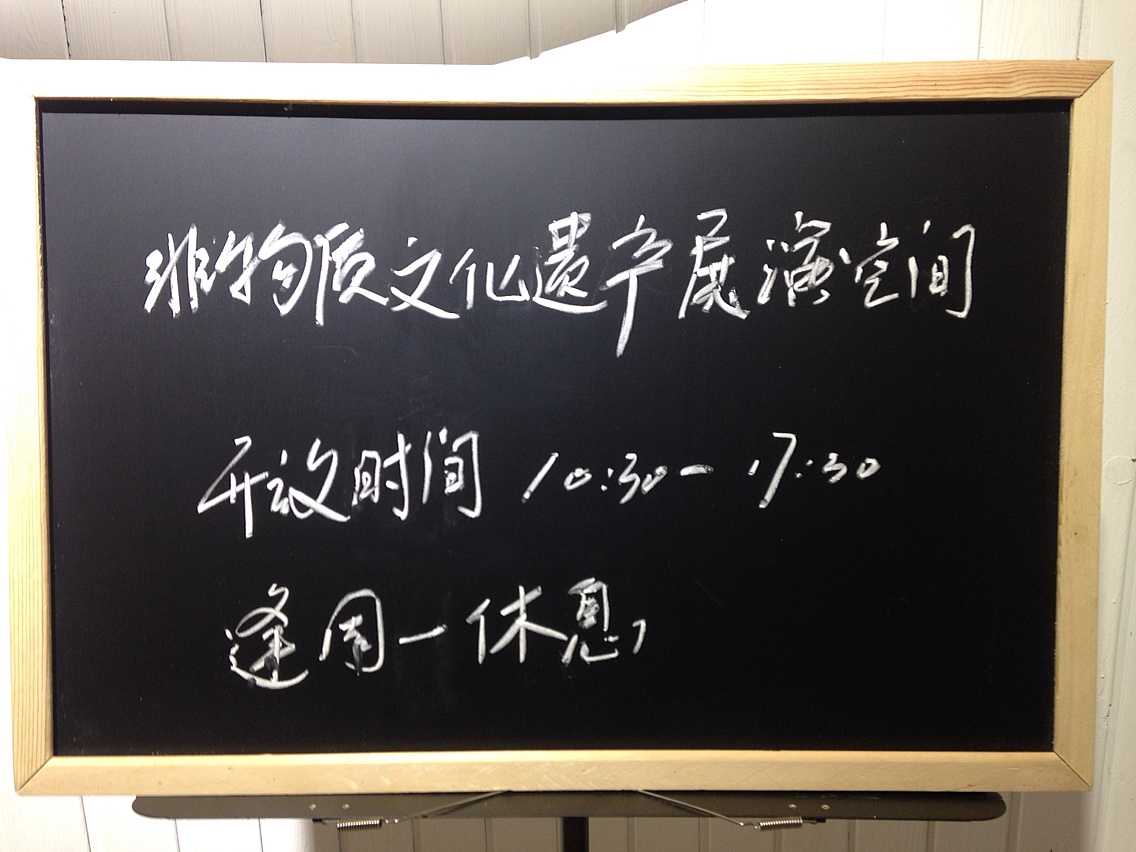 非物质文化遗产展演空间
开放时间 10:30 - 17:30
逢周一休息,